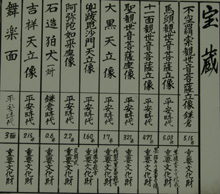 宝蔵
不空羂索観世音菩薩立像 鎌倉
馬頭観世音菩薩立像 平安時代 重要文化財
十一面観世音菩薩立像 平安時代 重要文化財
聖観世音菩薩立像 平安時代 重要文化財
大黒天立像 平安時代 重要文化財
兜跋毘沙門天立像 平安時代 160 重要文化財
阿弥陀如来座像 平安時代 重要文化財
石造狛犬 一対 鎌倉時代 重要文化財
吉祥天立像 平安時代 重要文化財
舞楽面 平安時代 3面 重要文化財